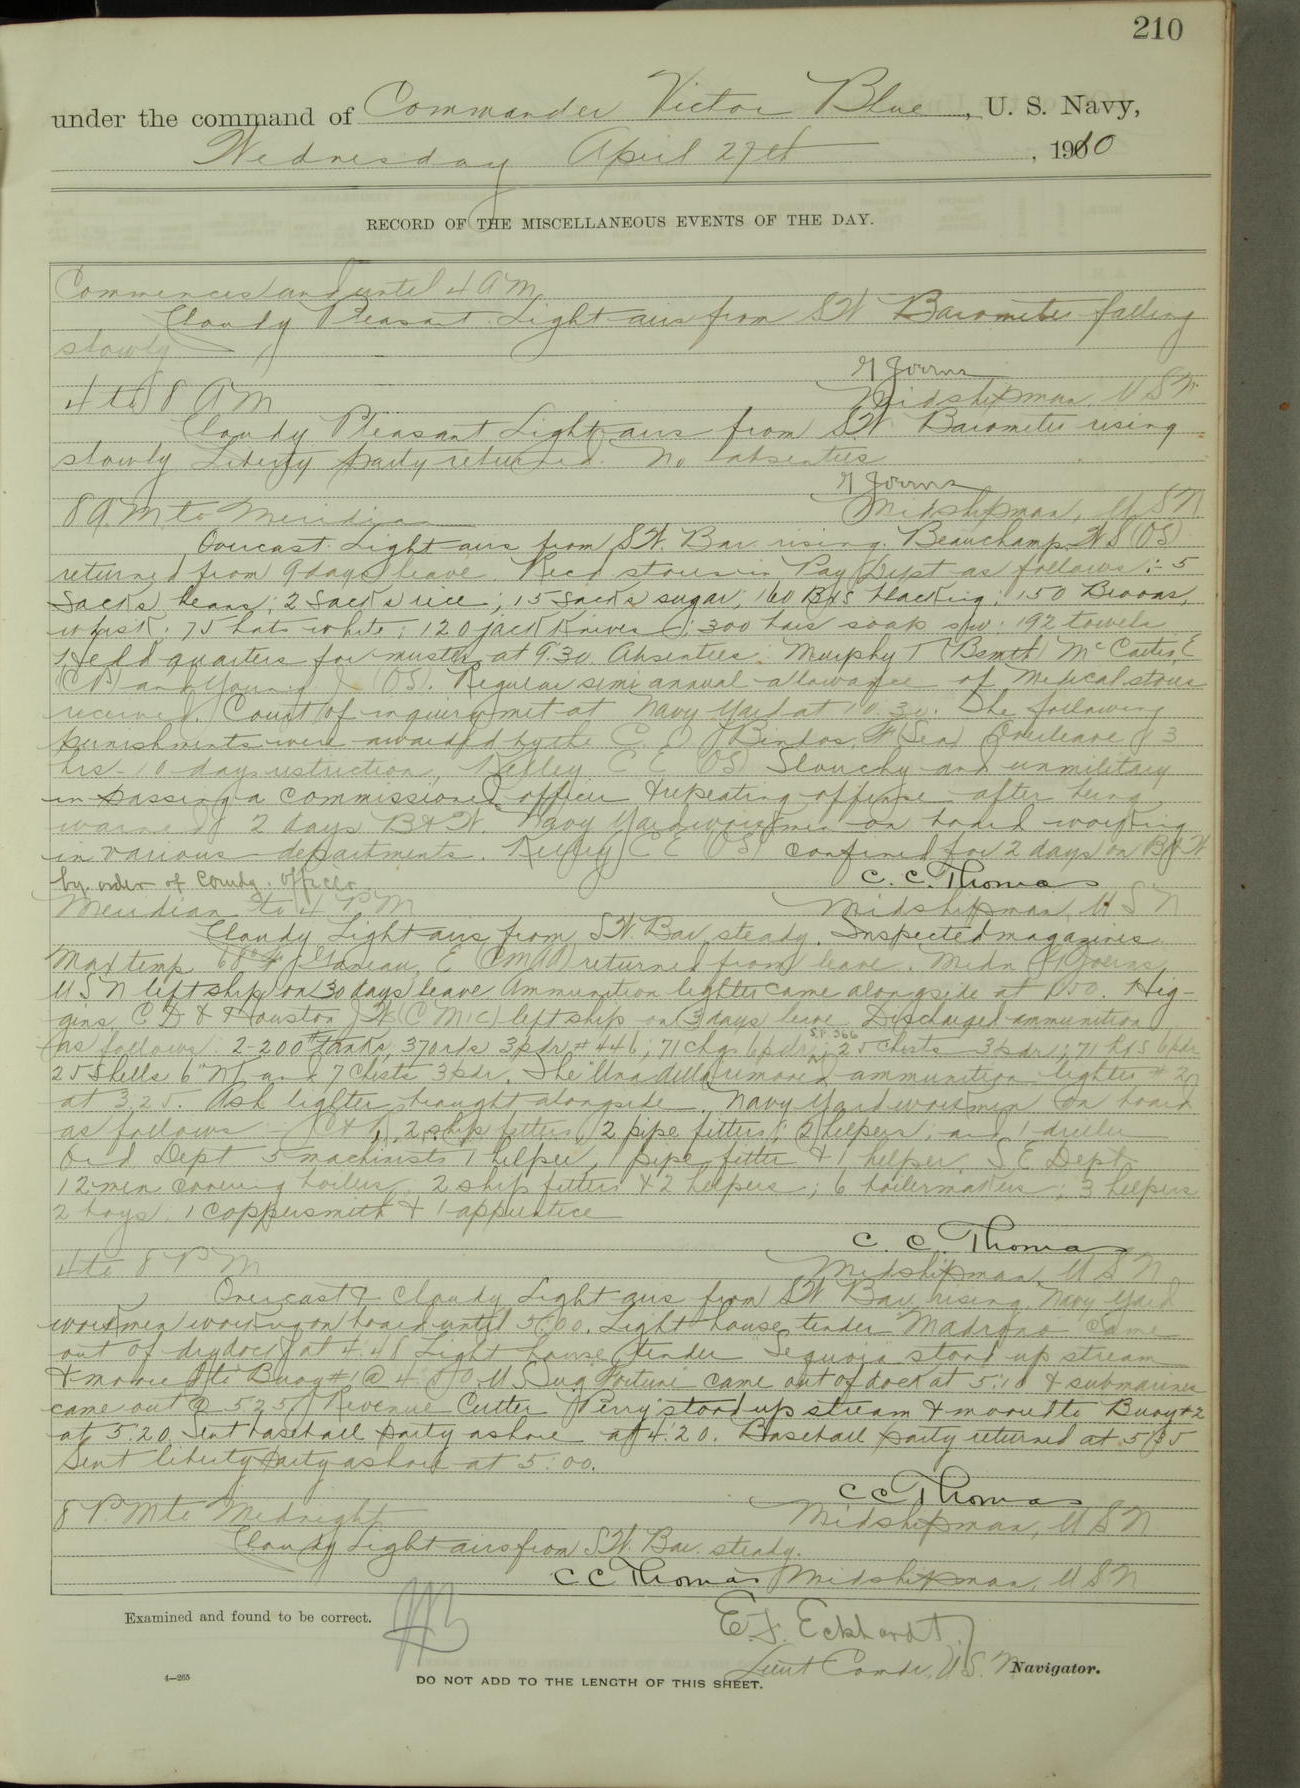 210
under the command of Commander Victor Blue, U. S. Navy,
Wednesday April 27th, 1910
RECORD OF THE MISCELLANEOUS EVENTS OF THE DAY.
Commences and until 4 A M
Cloudy Pleasant Light airs from SW Barometer falling
slowly
4 to 8 A M
Midshipman, U S N
Cloudy Pleasant Light airs from S.W Barometer rising
slowly Liberty party returned. No absentees
8 A.M to Meridian
Midshipman, U S N
Overcast. Light airs from S.W. Bar. rising. Beauchamp, W S (OS)
returned from 9 days leave Recd stores in Pay Dept as follows :- 5
Sacks beans; 2 Sacks rice; 15 Sacks sugar; 160 Bxs blacking; 150 Brooms,
whisk; 75 hats white; 120 jack knives; 300 bars soap sw; 192 towels
Held quarters for muster at 9.30. Absentees: Murphy T (Bsmth) McCarter, E
(CP) and Young J (OS). Regular semi annual allowance of Medical stores
received. Court of inquiry met at Navy Yard at 10.30. The following
punishments were awarded by the C. O. F (Sea) Overleave 3
hrs - 10 days restriction, Kelley C E (OS) Slouchy and unmilitary
in passing a commissioned officer & repeating offense after being
warned 2 days B & W. Navy Yard workmen on board working
in various departments. Kelley C E (OS) confined for 2 days on B & W
by order of Comdg. officer
C. C. Thomas
Meridian to 4 P M
Midshipman, U S N
Cloudy Light airs from S.W. Bar steady. Inspected magazines
Max temp 68° F. E (CMAA) returned from leave. Midn
U S N left ship on 30 days leave Ammunition lighter came alongside at 1.50. Hig-
gins, C D & Houston J W (C M 1c) left ship on 3 days leave. Discharged ammunition
as follows 2-200# tanks, 370 rds 3 pdr # 446; 71 chgs 6 pdr S.P. 366; 25 chests 3 pdr; 71 6 pdr
25 Shells 6" N and 7 Chests 3 pdr. The "Unadilla" removed ammunition lighter # 2
at 3.25. Ash lighter brought alongside. Navy Yard workmen on board
as follows:- C & R, 2 ship fitters, 2 pipe fitters; 2 helpers; and 1 driller
Ord Dept 5 machinists 1 helper, 1 pipe fitter & 1 helper. S E Dept
12 men covering boilers, 2 ship fitters & 2 helpers; 6 boilermakers; 3 helpers
2 boys. 1 coppersmith & 1 apprentice
C. C. Thomas
4 to 8 P M
Midshipman, U S N
Overcast & Cloudy Light airs from SW Bar. rising. Navy Yard
workmen working on board until 5:00. Light house tender Madrono came
out of drydock at 4.48 Light house tender Sequoia stood up stream
& moored to Buoy # 1 @ U S Tug Fortune came out of dock at 5:10 & submarines
came out @ 5.25 Revenue Cutter "Perry" stood up stream & moored to Buoy #2
at 5.20. Sent baseball party ashore at 4:20. Baseball party returned at 5:35
Sent liberty party ashore at 5:00.
C C Thomas
8 P.M to Midnight
Midshipman, U S N
Cloudy Light airs from S.W. Bar. steady.
C C Thomas Midshipman, U S N
Examined and found to be correct.
E. F. Eckhardt
Lieut Comdr, U.S. N Navigator.
4—265
DO NOT ADD TO THE LENGTH OF THIS SHEET.